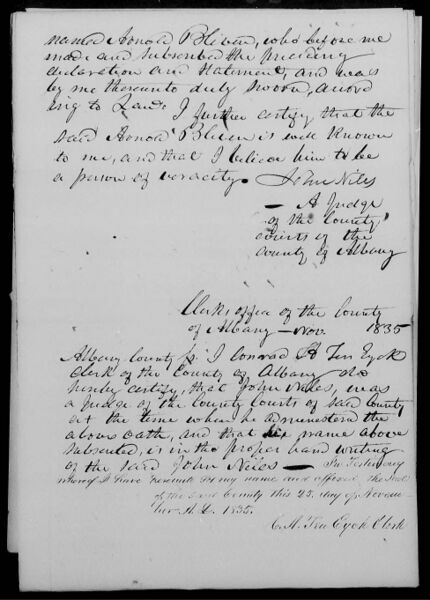 named Arnold Bliven, who before me
made and subscribed the preceding
declaration and statement, and was
by me thereunto duly sworn, accord
ing to Law. I further certify that the
said Arnold Bliven is well known
to me, and that I believe him to be
a person of veracity. John Niles
— A Judge
of the County
courts of the
county of Albany
Clerks office of the County
of Albany — Nov. 1835
Albany County ss. I Conrad A Ten Eyck
Clerk of the County of Albany do
hereby certify, that John Niles, was
a Judge of the County Courts of said County
at the time when he administered the
above oath, and that his name above
subscribed, is in the proper hand writing
of the said John Niles — In Testimony
whereof I have hereunto my name and affixed the Seal
of the said County this 25. day of Novem
ber A.D. 1835.
C. A. Ten Eyck Clerk